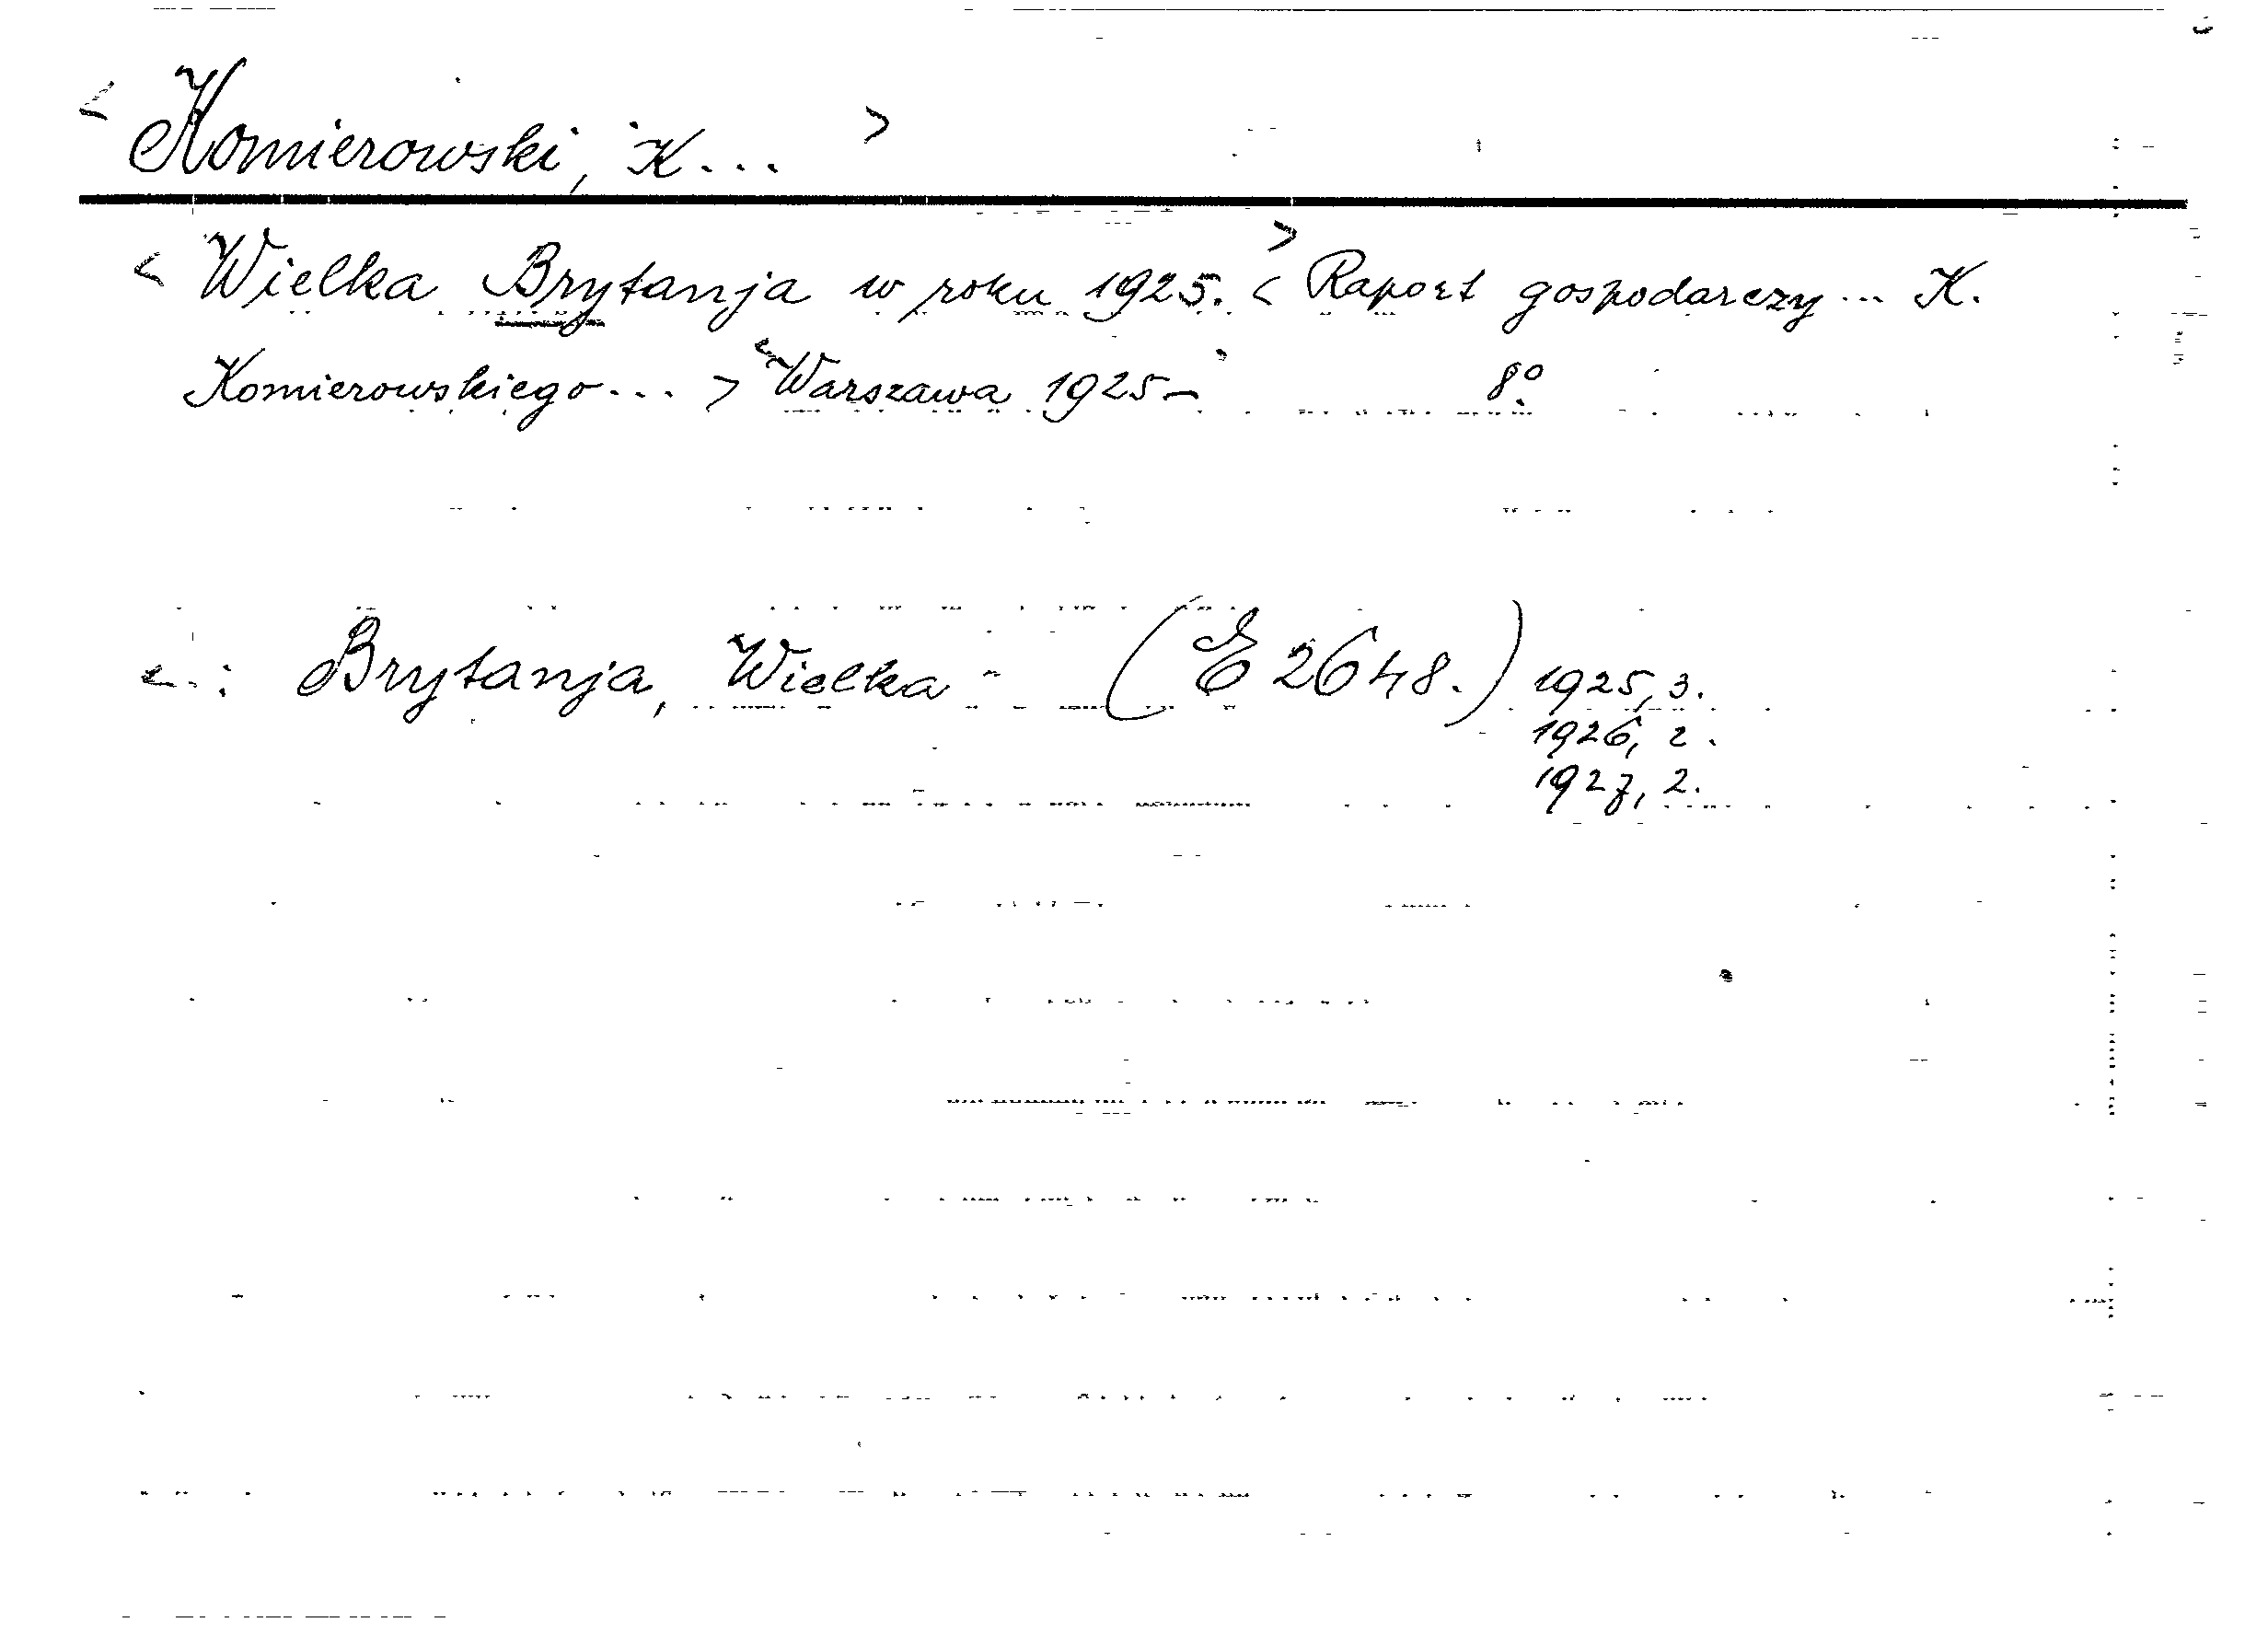 < Komierowski, K... >
< Wielka Brytanja w roku 1925. > < Raport gospodarczy... K.
Komierowskiego... > < Warszawa 1925 – > 8º.
: Brytanja, Wielka - (E 2648.) 1925, 3.
1926, 2.
1927, 2.